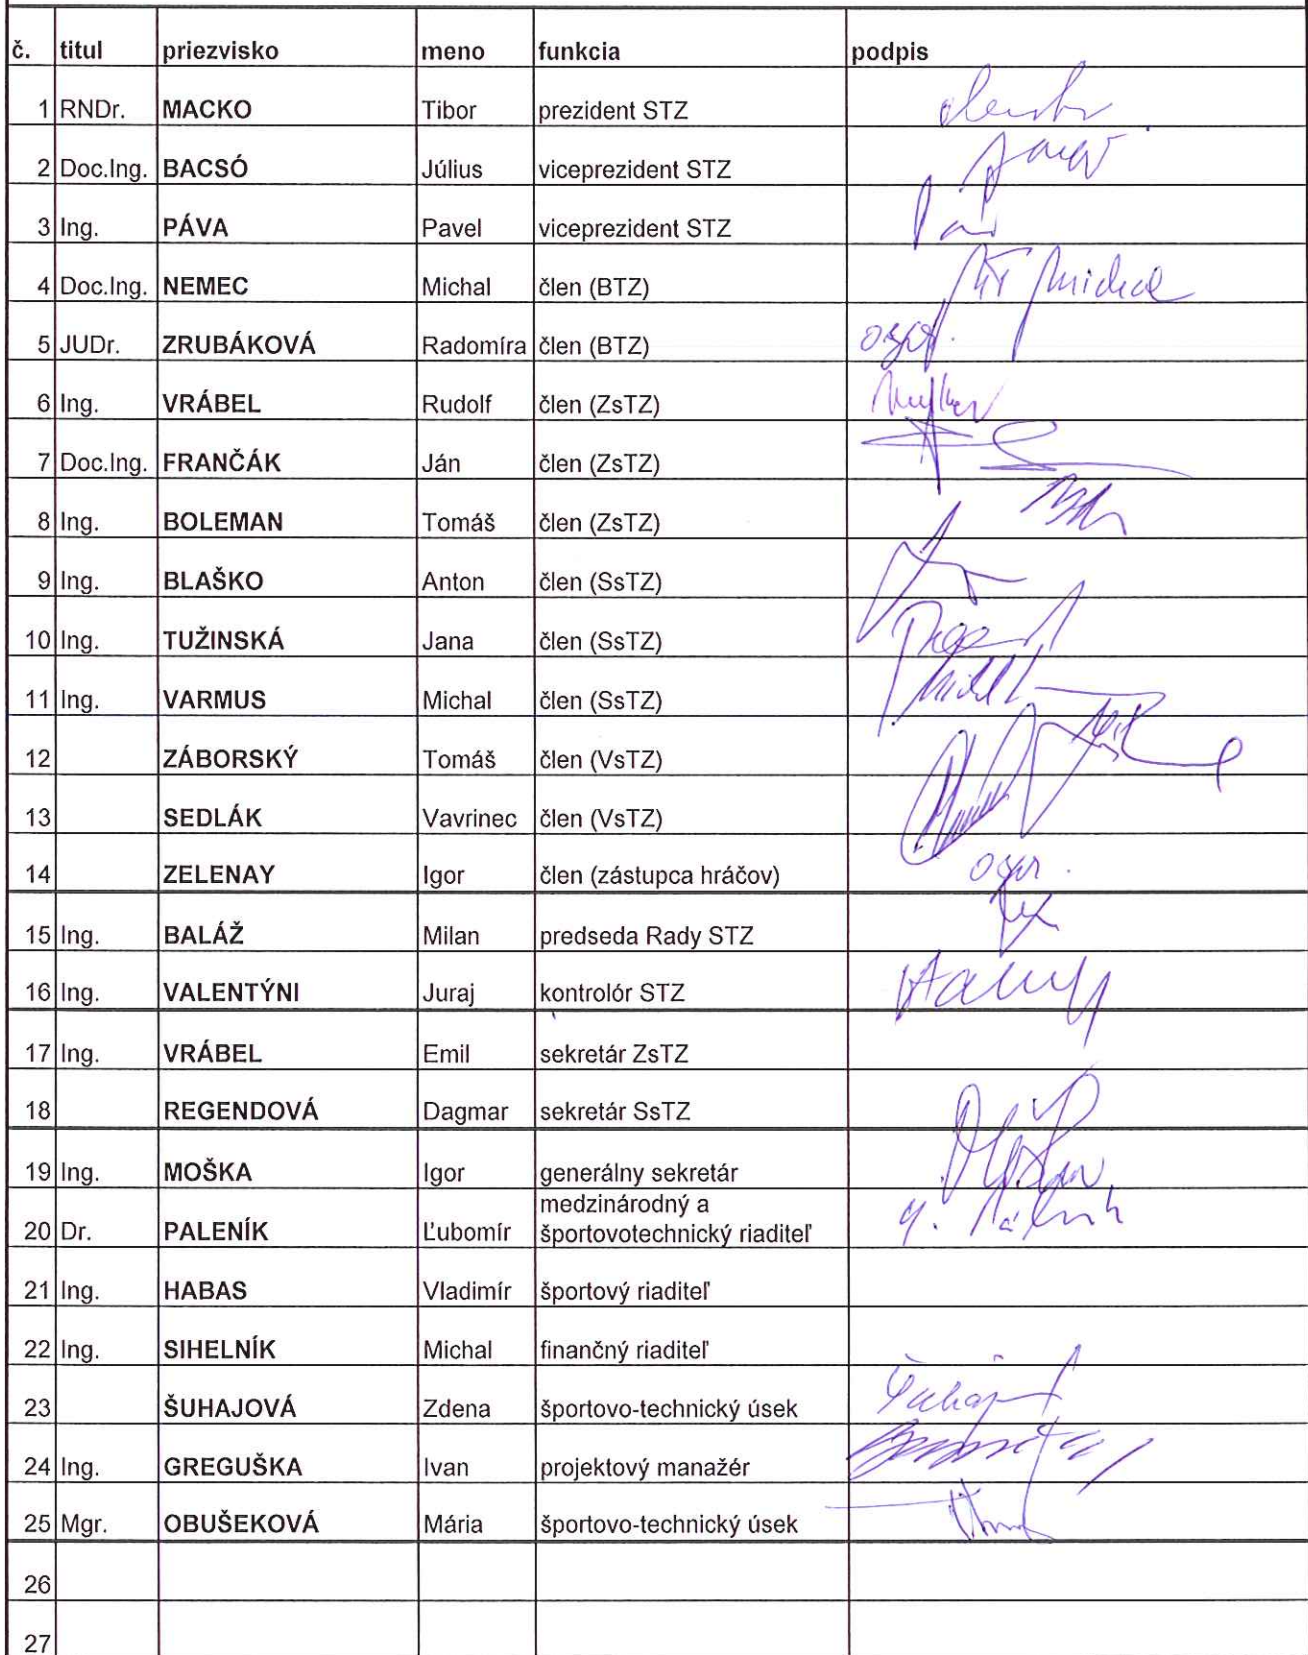 č. titul priezvisko meno funkcia podpis
1 RNDr. MACKO Tibor prezident STZ
2 Doc.Ing. BACSÓ Július viceprezident STZ
3 Ing. PÁVA Pavel viceprezident STZ
4 Doc.Ing. NEMEC Michal člen (BTZ)
5 JUDr. ZRUBÁKOVÁ Radomíra člen (BTZ) ospr.
6 Ing. VRÁBEL Rudolf člen (ZsTZ)
7 Doc.Ing. FRANČÁK Ján člen (ZsTZ)
8 Ing. BOLEMAN Tomáš člen (ZsTZ)
9 Ing. BLAŠKO Anton člen (SsTZ)
10 Ing. TUŽINSKÁ Jana člen (SsTZ)
11 Ing. VARMUS Michal člen (SsTZ)
12 ZÁBORSKÝ Tomáš člen (VsTZ)
13 SEDLÁK Vavrinec člen (VsTZ)
14 ZELENAY Igor člen (zástupca hráčov) ospr.
15 Ing. BALÁŽ Milan predseda Rady STZ
16 Ing. VALENTÝNI Juraj kontrolór STZ
17 Ing. VRÁBEL Emil sekretár ZsTZ
18 REGENDOVÁ Dagmar sekretár SsTZ
19 Ing. MOŠKA Igor generálny sekretár
20 Dr. PALENÍK Ľubomír medzinárodný a
športovotechnický riaditeľ
21 Ing. HABAS Vladimír športový riaditeľ
22 Ing. SIHELNÍK Michal finančný riaditeľ
23 ŠUHAJOVÁ Zdena športovo-technický úsek
24 Ing. GREGUŠKA Ivan projektový manažér
25 Mgr. OBUŠEKOVÁ Mária športovo-technický úsek
26
27